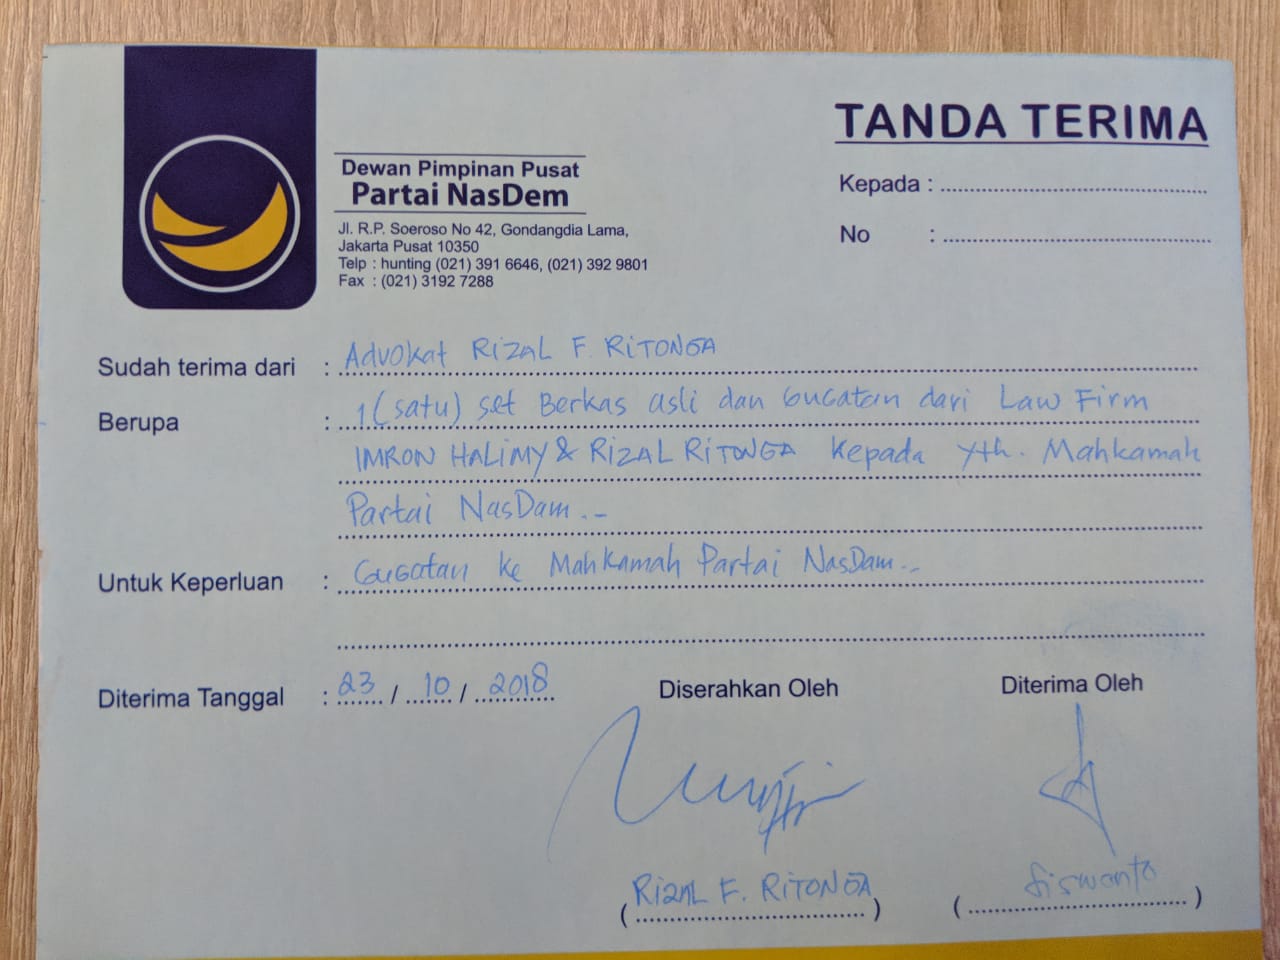 TANDA TERIMA
Kepada :
No :
Dewan Pimpinan Pusat
Partai NasDem
Jl. R.P. Soeroso No 42, Gondangdia Lama,
Jakarta Pusat 10350
Telp : hunting (021) 391 6646, (021) 392 9801
Fax : (021) 3192 7288
Sudah terima dari : Advokat RIZAL F. RITONGA
Berupa : 1 (satu) set Berkas asli dan Gugatan dari Law Firm
IMRON HALIMY & RIZAL RITONGA Kepada Yth. Mahkamah
Partai NasDam.-
Untuk Keperluan : Gugatan ke Mahkamah Partai NasDam..
Diterima Tanggal : 23 / 10 / 2018
Diserahkan Oleh
Diterima Oleh
(RIZAL F. RITONGA)
(Siswanto)